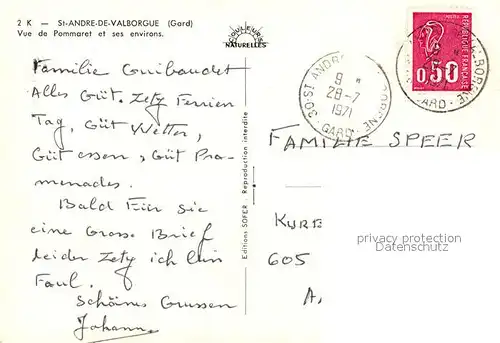 2 K — St-ANDRE-DE-VALBORGUE (Gard)
Vue de Pommaret et ses environs.
COULEURS
NATURELLES
Familie Guibaudet
Alles Güt. Zety Ferrien
Tag, Güt Wetter,
Güt essen, Güt Pro-
menades.
Bald Für sie
eine Gross Brief
leider Zety ich bin
Faul.
Schöines Grussen
Johann
Editions SOFER - Reproduction interdite
30 ST ANDRE
9 H
28-7
1971
GARD
REPUBLIQUE FRANÇAISE
0,50
FAMILIE SPEER
KURE
605
A.
privacy protection
Datenschutz